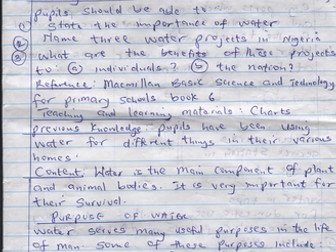 pupils should be able to
① State the importance of water
② Name three water projects in Nigeria
③ What are the benefits of these projects
to: ⓐ individuals? ⓑ the nation?
Reference: Macmillan Basic Science and Technology
for primary schools book 6
Teaching and learning materials: Charts
previous knowledge: pupils have been using
water for different things in their various
homes.
Content: Water is the main component of plant
and animal bodies. It is very important for
their survival.
PURPOSE OF WATER
water serves many useful purposes in the life
of man. some of these purposes include